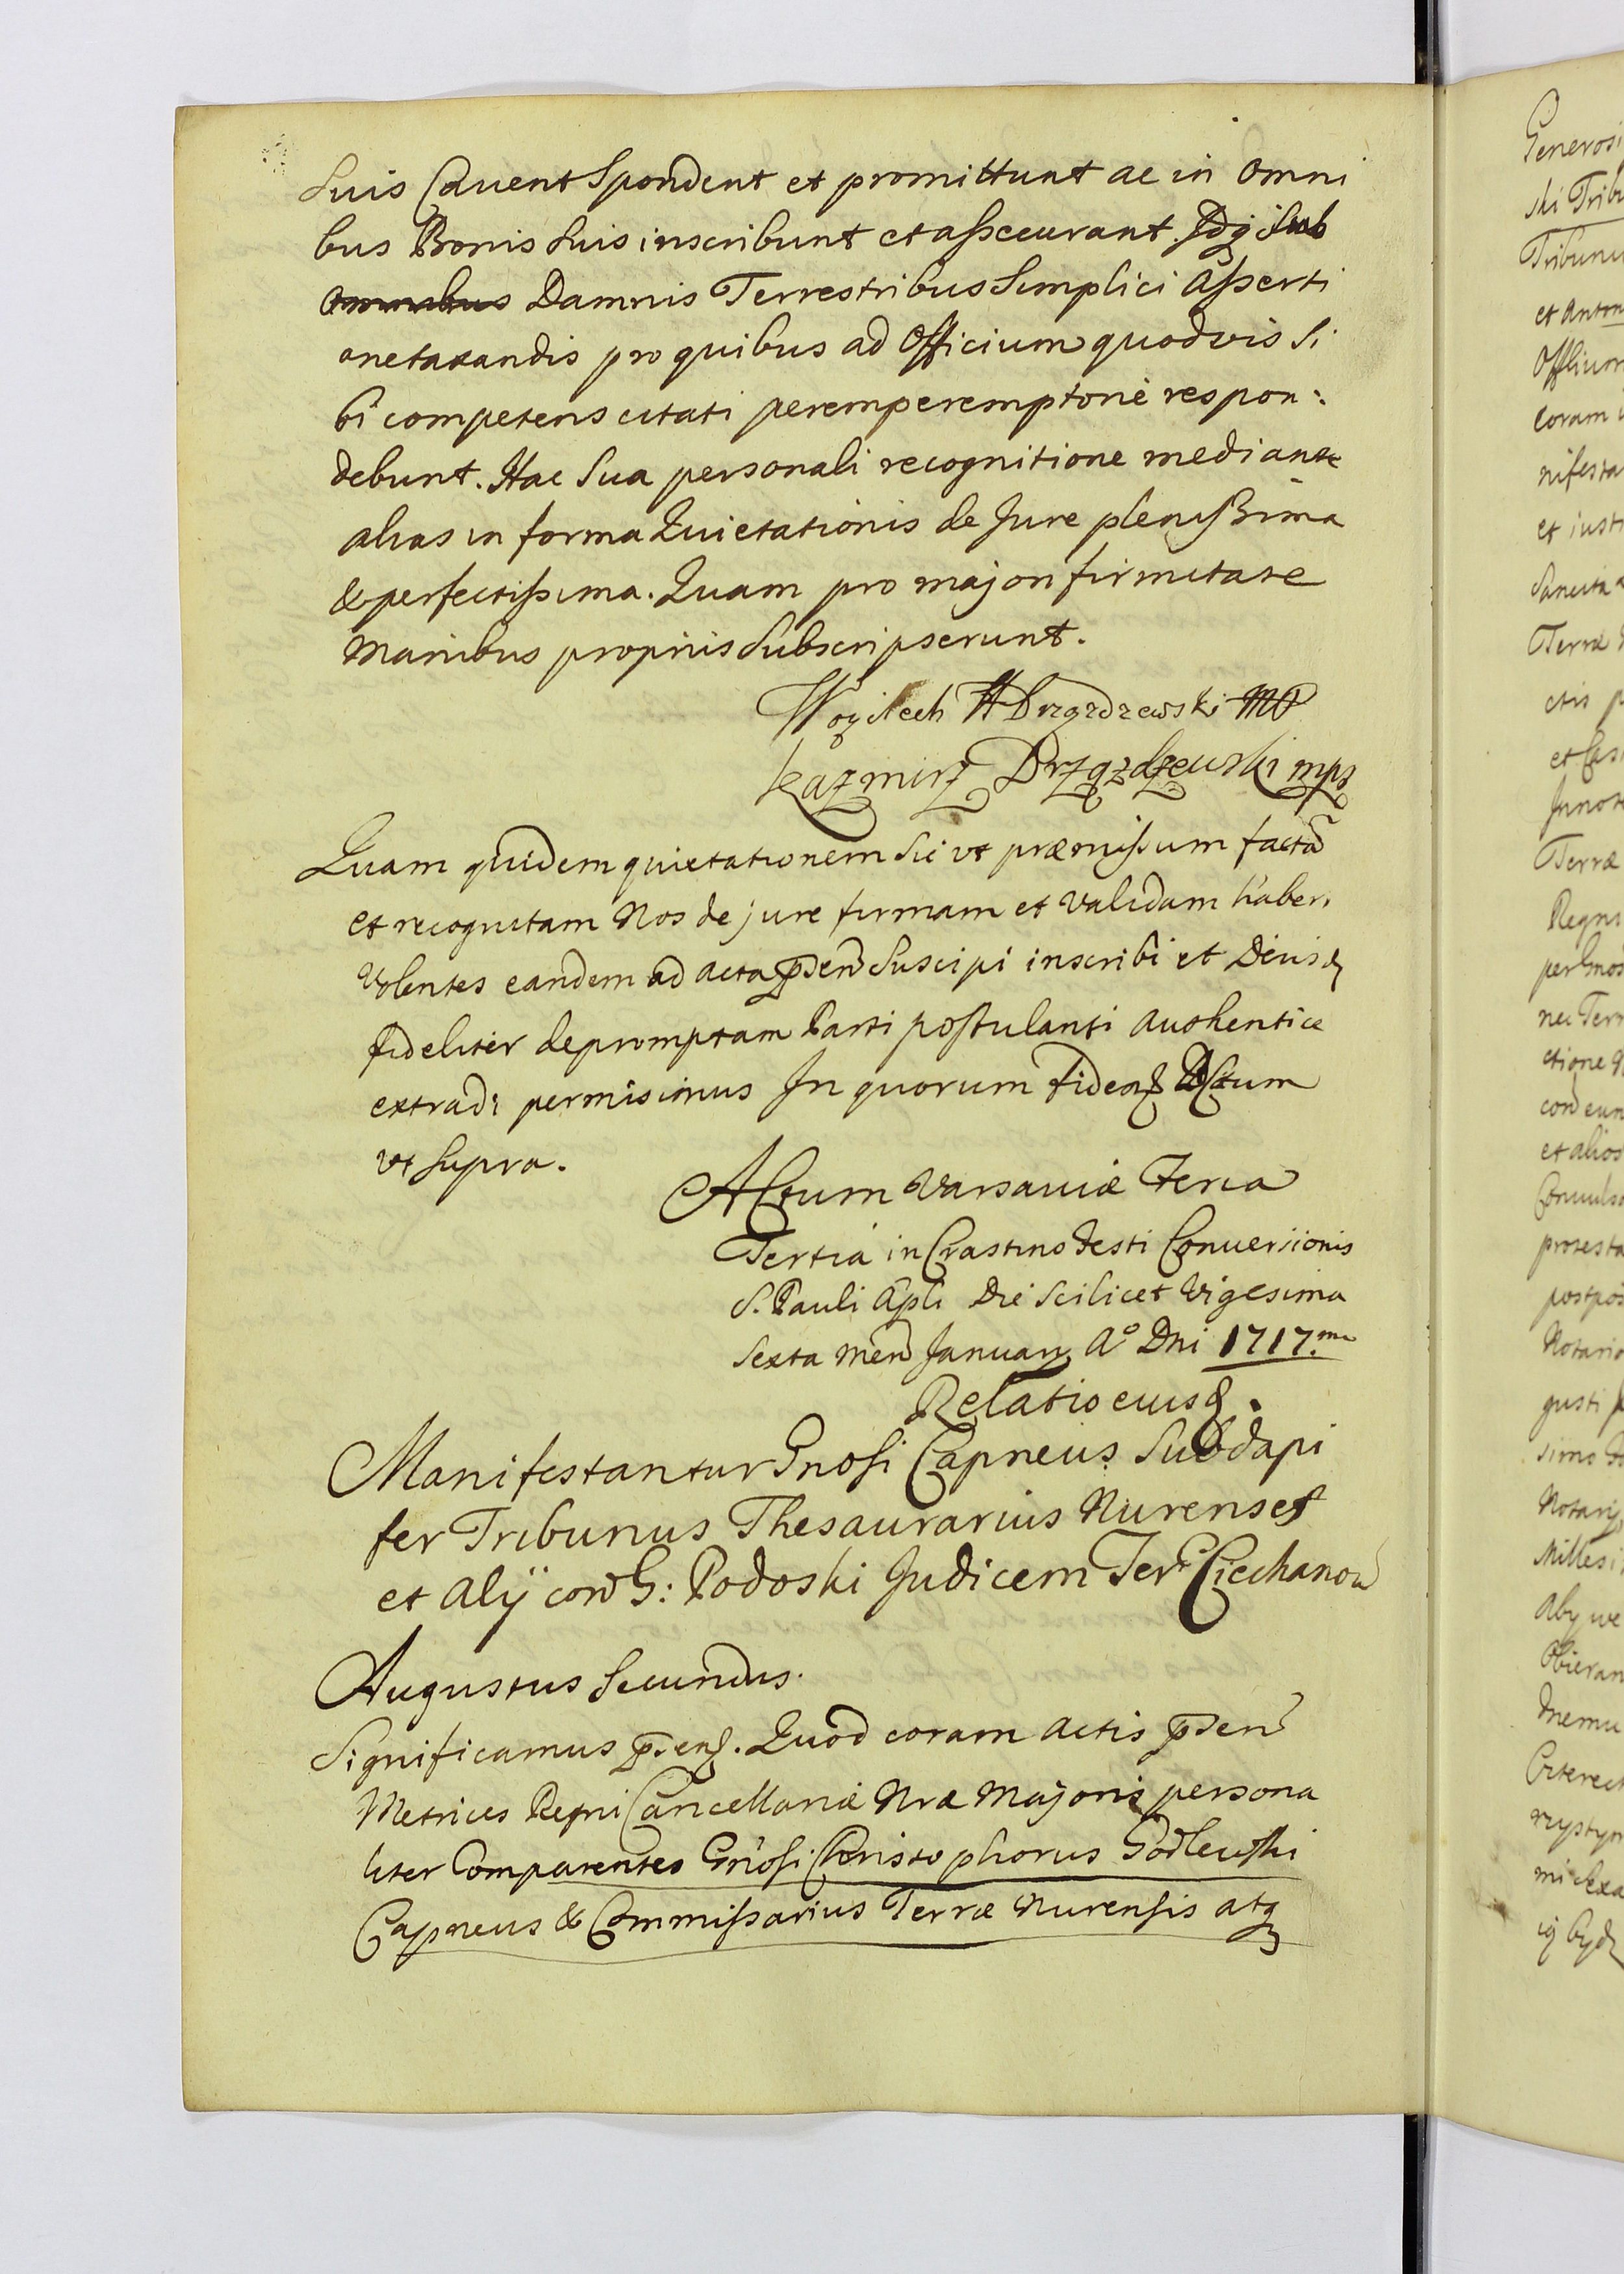 Suis Cavent Spondent et promittunt ac in Omni
bus Bonis Suis inscribunt et assecurant. Idq Sub
Omnibus Damnis Terrestribus Simplici Asserti
one taxandis pro quibus ad Officium quodvis Si
bi competens citati peremperemptorie respon:
debunt. Hac Sua personali recognitione mediante
alias in forma Quietationis de Jure plenissima
& perfectissima. Quam pro majori firmitate
Manibus propriis Subscripserunt.
Woyciech H Drzązdzewski MP
Kazmirz Drzązdzewski mp
Quam quidem quietationem Sic ut præmissum factã
et recognitam Nos de jure firmam et Validam haberi
Volentes eandem ad acta p̄sen Suscipi inscribi et
fideliter depromptam Parti postulanti authentice
extradi permisimus In quorum fidem Actum
vt Supra.
Actum Varsaviæ Feria
Tertiá in Crastino Festi Conversionis
S. Pauli Apli Die Scilicet Vigesima
Sexta Men January Aº Dni 1717.mo
Relatio eiusd.
Manifestantur Gnosi Capneus Subdapi
fer Tribunus Thesaurarius Nurenses
et Alÿ con G: Podoski Judicem Ter Ciechanow
Augustus Secundus.
Significamus p̄sen. Quod coram actis p̄sen
Metrices Regni Cancellariæ Nræ Majoris persona
liter Comparentes Gnosi Christophorus Godlewski
Capneus & Commissarius Terræ Nurensis atq
Generosi
ski Tribu
Tribunu
et Anton
coram
nifesta
et iusti
Terræ
ctis p
Terræ
Regni
nec Terr
ctione q
et alios
protesta
postpos
Notario
gusti
simo
Notary
Millesi
Aby we